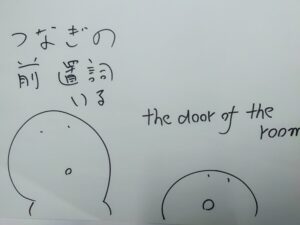 つなぎの
前置詞
いる
the door of the
room